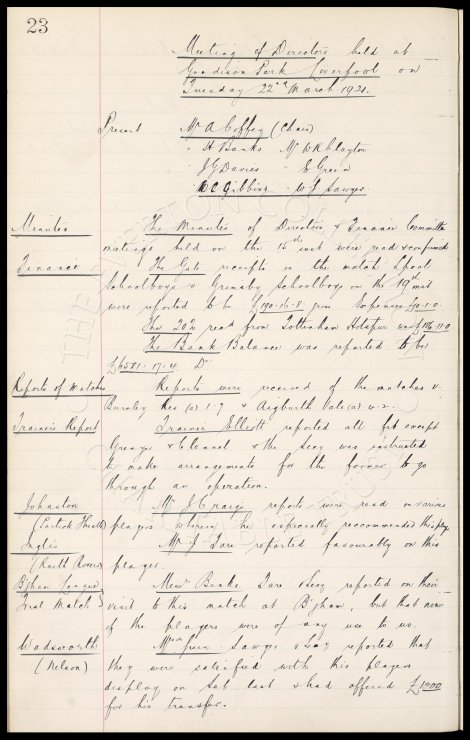 23
Meeting of Directors held at
Goodison Park Liverpool on
Tuesday 22nd March 1921.
Present Mr A Coffey (Chair)
" H Banks Mr W R Clayton
" J G Davies " E Green
" W C Gibbins " W J Sawyer
Minutes The Minutes of Directors & Finance Committee
meetings held on the 15th inst were read & confirmed
Finance The Gate receipts in the match Lpool
Schoolboys v Grimsby Schoolboys on the 19th inst
were reported to be £190.16.8 gross Expenses
The 20% recd from Tottenham Hotspur was
The Bank Balance was reported to be
£6581.17.4 Dr
Reports of Matches Reports were received of the matches v.
Burnley Res (a) 1-7 & Aigburth Vale (a) 4-2.
Trainers Report Trainer Elliott reported all fit except
Grenyer & Clennell & the Secy was instructed
to make arrangements for the former to go
through an operation.
Johnston Mr J Craig's reports were read on various
(Partick Thistle) players wherein he especially recommended this player
Inglis Mr J Fare reported favourably on this
(Raith Rovers) player.
B'ham League Messrs Banks Fare & Secy reported on their
Trial Match visit to this match at B'ham, but that none
of the players were of any use to us.
Wadsworth Messrs Green Sawyer & Secy reported that
(Nelson) they were satisfied with this players
display on Sat last & had offered £1200
for his transfer.